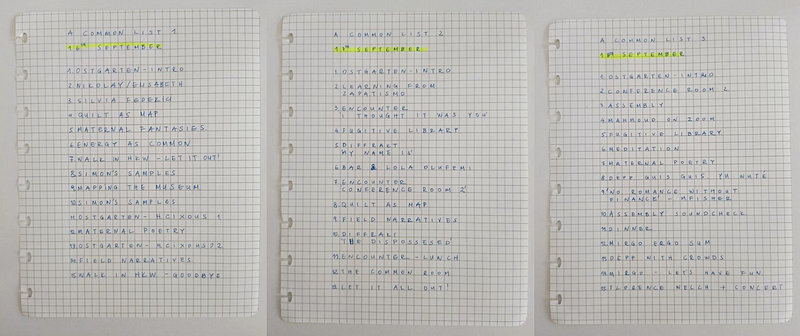 A COMMON LIST 1
16TH SEPTEMBER
1.OSTGARTEN-INTRO
2.NIKOLAY/ELISABETH
3.SILVIA FEDERICI
4.QUILT AS MAP
5.MATERNAL FANTASIES
6.ENERGY AS COMMON
7.WALK IN HKW-LET IT OUT!
8.SIMON'S SAMPLES
9.MAPPING THE MUSEUM
10.SIMON'S SAMPLES
11.OSTGARTEN- H.CIXOUS 1
12.MATERNAL POETRY
13.OSTGARTEN-H.CIXOUS 2
14.FIELD NARRATIVES
15.WALK IN HKW-GOODBYE
A COMMON LIST 2
17TH SEPTEMBER
1.OSTGARTEN-INTRO
2.LEARNING FROM
ZAPATISMO
3.ENCOUNTER
'I THOUGHT IT WAS YOU'
4.FUGITIVE LIBRARY
5.DIFFRAKT
'MY NAME IS'
6.BAR & LOLA OLUFEMI
7.ENCOUNTER
'CONFERENCE ROOM 2'
8.QUILT AS MAP
9.FIELD NARRATIVES
10.DIFFRAKT
'THE DISPOSSESED'
11.ENCOUNTER-LUNCH
12.THE COMMON ROOM
13.LET IT ALL OUT!
A COMMON LIST 3
18TH SEPTEMBER
1.OSTGARTEN-INTRO
2.CONFERENCE ROOM 2
3.ASSEMBLY
4.MAHMOUD ON ZOOM
5.FUGITIVE LIBRARY
6.MEDITATION
7.MATERNAL POETRY
8.DEPP GUIS GUIS
9.'NO ROMANCE WITHOUT
FINANCE'- M.FISHER
10.ASSEMBLY SOUNDCHECK
11.DINNER
12.MIRGO ERGO SUM
13.DEPP WITH CROWDS
14.MIRGO - LETS HAVE FUN
15.FLORENCE WELCH + CONCERT